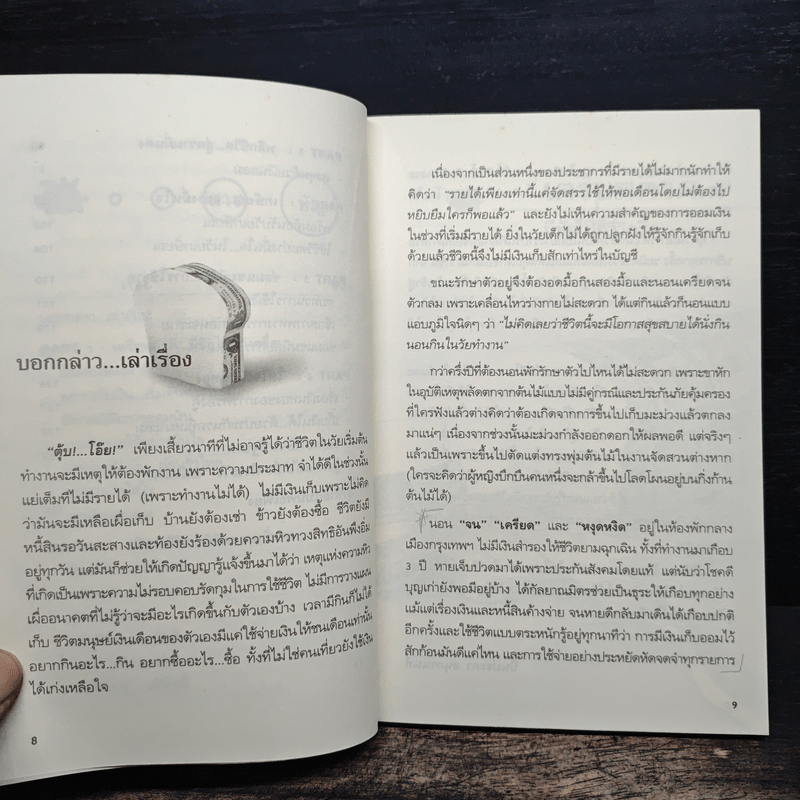 บอกกล่าว...เล่าเรื่อง
"ตุ้บ!...โอ๊ย!" เพียงเสี้ยวนาทีที่ไม่อาจรู้ได้ว่าชีวิตในวัยเริ่มต้น
ทำงานจะมีเหตุให้ต้องพักงาน เพราะความประมาท จำได้ดีในช่วงนั้น
แย่เต็มทีไม่มีรายได้ (เพราะทำงานไม่ได้) ไม่มีเงินเก็บเพราะไม่คิด
ว่ามันจะมีเหลือเผื่อเก็บ บ้านยังต้องเช่า ข้าวยังต้องซื้อ ชีวิตยังมี
หนี้สินรอวันสะสางและท้องยังร้องด้วยความหิวทวงสิทธิอันพึงอิ่ม
อยู่ทุกวัน แต่มันก็ช่วยให้เกิดปัญญารู้แจ้งขึ้นมาได้ว่า เหตุแห่งความหิว
ที่เกิดเป็นเพราะความไม่รอบคอบรัดกุมในการใช้ชีวิต ไม่มีการวางแผน
เผื่ออนาคตที่ไม่รู้ว่าจะมีอะไรเกิดขึ้นกับตัวเองบ้าง เวลามีกินก็ไม่ได้
เก็บ ชีวิตมนุษย์เงินเดือนของตัวเองมีแค่ใช้จ่ายเงินให้ชนเดือนเท่านั้น
อยากกินอะไร...กิน อยากซื้ออะไร...ซื้อ ทั้งที่ไม่ใช่คนเที่ยวยังใช้เงิน
ได้เก่งเหลือใจ
8
เนื่องจากเป็นส่วนหนึ่งของประชากรที่มีรายได้ไม่มากนักทำให้
คิดว่า "รายได้เพียงเท่านี้แค่จัดสรรใช้ให้พอเดือนโดยไม่ต้องไป
หยิบยืมใครก็พอแล้ว" และยังไม่เห็นความสำคัญของการออมเงิน
ในช่วงที่เริ่มมีรายได้ ยิ่งในวัยเด็กไม่ได้ถูกปลูกฝังให้รู้จักกินรู้จักเก็บ
ด้วยแล้วชีวิตนี้จึงไม่มีเงินเก็บสักเท่าไหร่ในบัญชี
ขณะรักษาตัวอยู่จึงต้องอดมื้อกินสองมื้อและนอนเครียดจน
ตัวกลม เพราะเคลื่อนไหวร่างกายไม่สะดวก ได้แต่กินแล้วก็นอนแบบ
แอบภูมิใจนิดๆ ว่า "ไม่คิดเลยว่าชีวิตนี้จะมีโอกาสสุขสบายได้นั่งกิน
นอนกินในวัยทำงาน"
กว่าครึ่งปีที่ต้องนอนพักรักษาตัวไปไหนได้ไม่สะดวก เพราะขาหัก
ในอุบัติเหตุพลัดตกจากต้นไม้แบบไม่มีคู่กรณีและประกันภัยคุ้มครอง
ที่ใครฟังแล้วต่างคิดว่าต้องเกิดจากการขึ้นไปเก็บมะม่วงแล้วตกลง
มาแน่ๆ เนื่องจากช่วงนั้นมะม่วงกำลังออกดอกให้ผลพอดี แต่จริงๆ
แล้วเป็นเพราะขึ้นไปตัดแต่งทรงพุ่มต้นไม้ในงานจัดสวนต่างหาก
(ใครจะคิดว่าผู้หญิงบึกบึนคนหนึ่งจะกล้าขึ้นไปโลดโผนอยู่บนกิ่งก้าน
ต้นไม้ได้)
นอน "จน" "เครียด" และ "หงุดหงิด" อยู่ในห้องพักกลาง
เมืองกรุงเทพฯ ไม่มีเงินสำรองให้ชีวิตยามฉุกเฉิน ทั้งที่ทำงานมาเกือบ
3 ปี หายเจ็บปวดมาได้เพราะประกันสังคมโดยแท้ แต่นับว่าโชคดี
บุญเก่ายังพอมีอยู่บ้าง ได้กัลยาณมิตรช่วยเป็นธุระให้เกือบทุกอย่าง
แม้แต่เรื่องเงินและหนี้สินค้างจ่าย จนหายดีกลับมาเดินได้เกือบปกติ
อีกครั้งและใช้ชีวิตแบบตระหนักรู้อยู่ทุกนาทีว่า การมีเงินเก็บออมไว้
สักก้อนมันดีแค่ไหน และการใช้จ่ายอย่างประหยัดหัดจดจำทุกรายการ
9